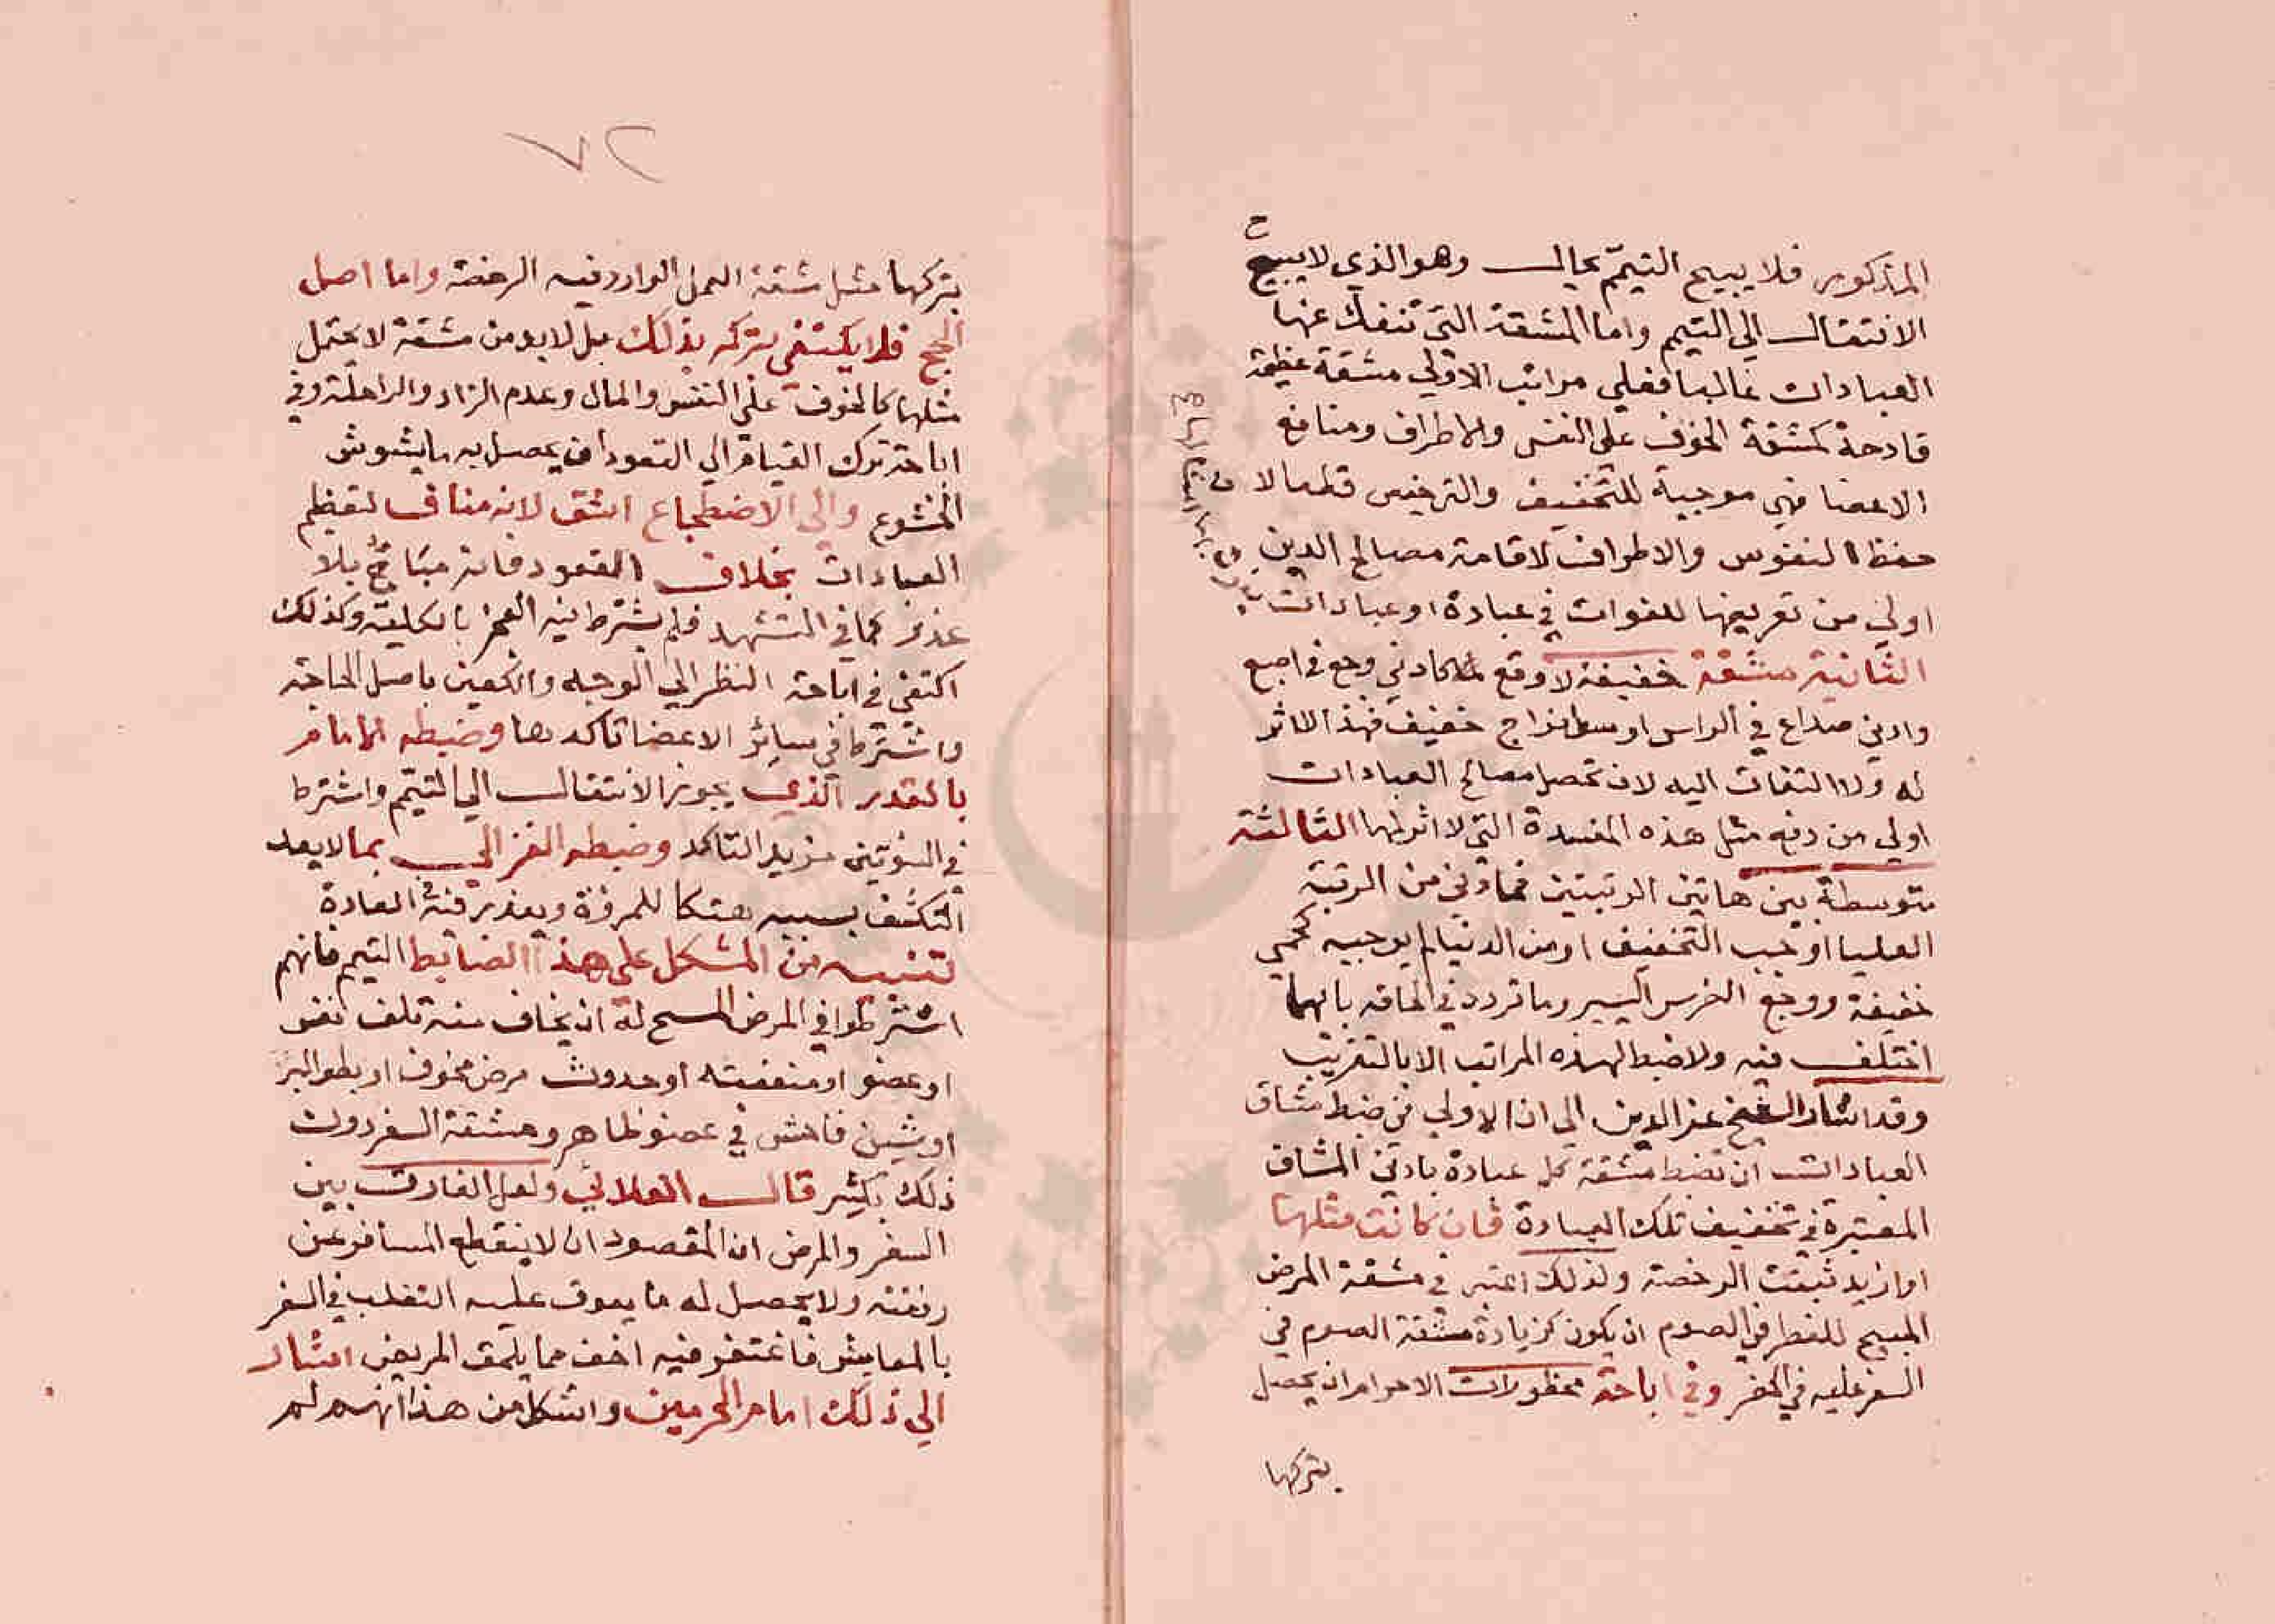 المذكور فلا يبيح التيمم بحال وهو الذي لا يبيح
ح
الانتقال الي التيمم واما المشقة التي تنفك عنها
العبادات غالبا فعلي مراتب الاولي مشقة عظيمة
قادحة كمشقة الخوف علي النفس والاطراف ومنافع
الاعضا فهي موجبة للتخفيف والترخيص قطعا لان
حفظ النفوس والاطراف لاقامة مصالح الدين
اولي من تعريضها للفوات في عبادة او عبادات
الثانية مشقة خفيفة لا وقع لها كادني وجع في اصبع
وادني صداع في الراس او سوء مزاج خفيف فهذا لا اثر
له ولا التفات اليه لان تحصل مصالح العبادات
اولي من دفع مثل هذه المفسدة التي لا اثر لها الثالثة
متوسطة بين هاتين الرتبتين فما دني من الرتبة
العليا اوجب التخفيف او من الدنيا لم يوجبه كحمي
خفيفة ووجع الضرس اليسير وما تردد في الحاقه بايهما
اختلف فيه ولا ضبط لهذه المراتب الا بالتقريب
وقد اشار الشيخ عز الدين الي ان الاولي في ضبط مشاق
العبادات ان تضبط مشقة كل عبادة بادني المشاق
المعتبرة في تخفيف تلك العبادة فان كانت مثلها
او ازيد ثبتت الرخصة ولذلك اعتبر في مشقة المرض
المبيح للفطر في الصوم ان يكون كزيادة مشقة الصوم في
السفر عليه في الحضر وفي اباحة محظورات الاحرام ان يحصل
بتركها
٧٢
بتركها مثل مشقة القمل الوارد فيه الرخصة واما اصل
الحج فلا يكتفي بتركه بذلك بل لا بد من مشقة لا يحتمل
مثلها كالخوف علي النفس والمال وعدم الزاد والراحلة وفي
اباحة ترك القيام الي القعود ان يحصل به ما يشوش
الخشوع والي الاضطجاع اشق لانه مناف لتعظيم
العبادات بخلاف القعود فانه مباح بلا
عذر كما في التشهد فلم يشترط فيه العجز بالكلية وكذلك
اكتفي في اباحة النظر الي الوجه والكفين باصل الحاجة
واشترط في سائر الاعضا تاكدها وضبطه الامام
بالقدر الذي يجوز الانتقال الي التيمم واشترط
في السوتين مزيد التاكد وضبطه الغزالي بما لا يعد
التكشف بسببه هتكا للمروة ويعذر فيه في العادة
تنبيه من المشكل علي هذا الضابط التيمم فانهم
اشترطوا في المرض المبيح له ان يخاف منه تلف نفس
او عضو او منفعته او حدوث مرض مخوف او بطو البر
او شين فاحش في عضو ظاهر ومشقة السفر دون
ذلك بكثير قال العلائي ولعل الفارق بين
السفر والمرض ان المقصود ان لا ينقطع المسافر عن
رفقته ولا يحصل له ما يعوق عليه التقلب في السفر
بالمعايش فاغتفر فيه اخف مما يلحق المريض اشار
الي ذلك امام الحرمين واشكل من هذا انهم لم